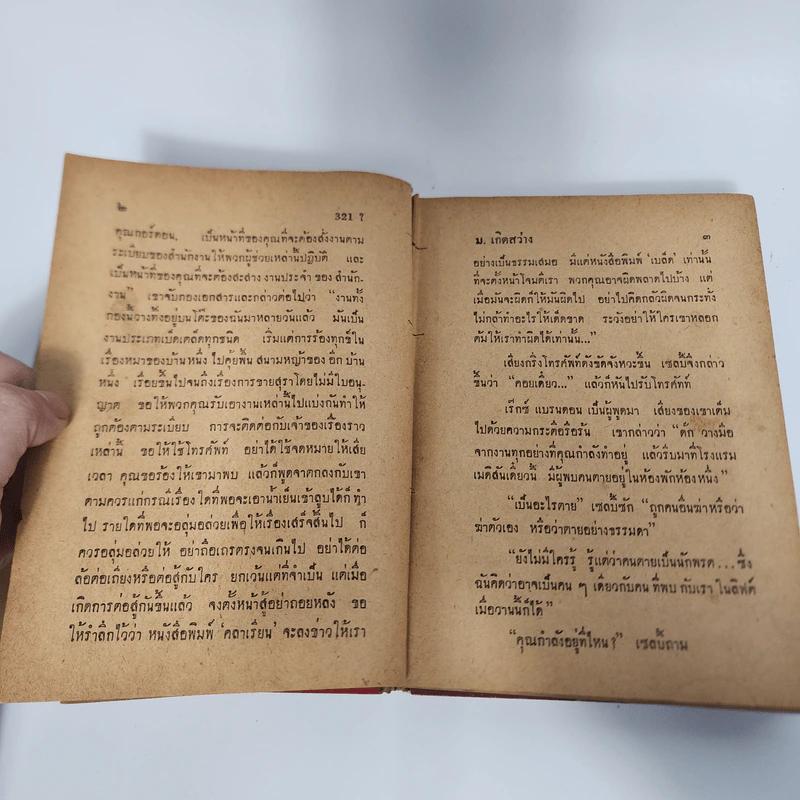 ๒ 321 ?
คุณกอร์ดอน. เป็นหน้าที่ของคุณที่จะต้องสั่งงานตาม
ระเบียบของสำนักงานให้พวกผู้ช่วยเหล่านี้ปฏิบัติ และ
เป็นหน้าที่ของคุณที่จะต้องสะสาง งานประจำ ของ สำนัก-
งาน” เขาจับกองเอกสารและกล่าวต่อไปว่า “งานทั้ง
กองนี้วางทิ้งอยู่บนโต๊ะของฉันมาหลายวันแล้ว มันเป็น
งานประเภทเบ็ดเตล็ดทุกชนิด เริ่มแต่การร้องทุกข์ใน
เรื่องหมาของบ้าน หนึ่ง ไปคุ้ยพื้น สนามหญ้าของ อีก บ้าน
หนึ่ง เรื่อยขึ้นไปจนถึงเรื่องการขายสุราโดยไม่มีใบอนุ-
ญาต ขอให้พวกคุณรับเอางานเหล่านี้ไปแบ่งกันทำให้
ถูกต้องตามระเบียบ การจะติดต่อกับเจ้าของเรื่องราว
เหล่านี้ ขอให้ใช้โทรศัพท์ อย่าได้ใช้จดหมายให้เสีย
เวลา คุณขอร้องให้เขามาพบ แล้วก็พูดจาตกลงกับเขา
ตามควรแก่กรณีเรื่อง ใดที่พอจะเอาน้ำเย็นเข้าลูบได้ก็ ทำ
ไป รายใดที่พอจะอลุ่มอล่วยเพื่อให้เรื่องเสร็จสิ้นไป ก็
ควรอลุ่มอล่วยให้ อย่าถือเถรตรงจนเกินไป อย่าได้ต่อ
ล้อต่อเถียงหรือต่อสู้กับใคร ยกเว้นแต่ที่จำเป็น แต่เมื่อ
เกิดการต่อสู้กันขึ้นแล้ว จงตั้งหน้าสู้อย่าถอยหลัง ขอ
ให้รำลึกไว้ว่า หนังสือพิมพ์ ‘คลาเรียน’ จะลงข่าวให้เรา
ม. เกิดสว่าง ๓
อย่างเป็นธรรมเสมอ มีแต่หนังสือพิมพ์ ‘เบล็ด’ เท่านั้น
ที่จะตั้งหน้าโจมตีเรา พวกคุณอาจผิดพลาดไปบ้าง แต่
เมื่อมันจะผิดก็ให้มันผิดไป อย่าไปคิดกลัวผิดจนกระทั่ง
ไม่กล้าทำอะไรให้เด็ดขาด ระวังอย่าให้ใครเขาหลอก
ต้มให้เราทำผิดได้เท่านั้น...”
เสียงกริ่งโทรศัพท์ดังขัดจังหวะขึ้น เซลบี้จึงกล่าว
ขึ้นว่า “คอยเดี๋ยว...” แล้วก็หันไปรับโทรศัพท์
เร๊กซ์ แบรนดอน เป็นผู้พูดมา เสียงของเขาเต็ม
ไปด้วยความกระตือรือร้น เขากล่าวว่า “ดั๊ก วางมือ
จากงานทุกอย่างที่คุณกำลังทำอยู่ แล้วรีบมาที่โรงแรม
เมดิสันเดี๋ยวนี้ มีผู้พบคนตายอยู่ในห้องพักห้องหนึ่ง”
“เป็นอะไรตาย” เซลบี้ซัก “ถูกคนอื่นฆ่าหรือว่า
ฆ่าตัวเอง หรือว่าตายอย่างธรรมดา”
“ยังไม่มีใครรู้ รู้แต่ว่าคนตายเป็นนักพรต...ซึ่ง
ฉันคิดว่าอาจเป็นคน ๆ เดียวกับคน ที่พบ กับเรา ในลิฟต์
เมื่อวานนี้ก็ได้”
“คุณกำลังอยู่ที่ไหน?” เซลบี้ถาม